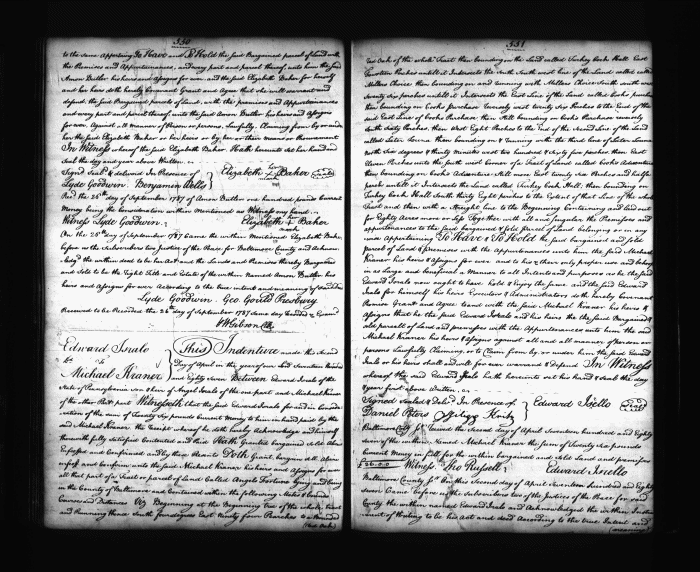 530
to the same appertaining To Have and To Hold the said Bargained parcel of Land with
the Premises and Appurtenances, and every part and parcel thereof, unto him the said
Amon Butler his heirs and assigns for ever, and the said Elizabeth Baker for herself
and her heirs doth hereby Covenant Grant and Agree that she will warrant and
defend the said Bargained parcel of Land, with the premises and Appurtenances
and every part and parcel thereof unto the said Amon Butler his heirs and Assigns
for ever. Against all manner of Person or persons, Lawfully Claiming from by or under
her the said Elizabeth Baker or her heirs or by, her or their means or Procurement
In Witness whereof the said Elizabeth Baker Hath hereunto set her hand and
Seal the day and year above Written
Signed Sealed & delivered In Presence of
Lyde Goodwin. Benjamin Wells
Elizabeth Baker
Recd the 26th day of September 1787 of Amon Butler one hundred pounds Current
Money being the Consideration within Mentioned as Witness my hand
Witness Lyde Goodwin.
Elizabeth Baker
mark
On the 26th day of September 1787 Came the within Mentioned Elizabeth Baker
before us the Subscribers two Justices of the Peace for Baltimore County and Acknow
ledged the within deed to be her Act and the Lands and Premises thereby Bargained
and Sold to be the Right Title and Estate of the within Named Amon Butler his
heirs and Assigns for ever According to the true intent and meaning of
Lyde Goodwin. Geo. Gould Presbury
Received to be Recorded the 26th day of September 1787 Same day Recorded & Examd
Wm Gibson Clk
Edward Isralo
To
Michael Kraner
This Indenture made this Second
Day of April in the year of our Lord Seventeen Hundred
and Eighty Seven Between Edward Isralo of the
State of Pensylvania son & heir of Angel Isralo of the one part and Michael Kraner
of the other Part Witnesseth that the said Edward Isralo for and in Consider
ation of the sum of Twenty Six pounds Current Money to him in hand paid by the
said Michael Kraner the Receipt whereof he doth hereby Acknowledge and himself
therewith fully satisfied Contented and Paid Hath Granted bargained Sold Aliened
Enfeoffed and Confirmed and by these Presents Doth Grant bargain sell alien
enfeoff and Confirm unto the said Michael Kraner his heirs and Assigns for ever
all that part of a Tract or parcel of Land Called Angels Fortune lying and being
in the County of Baltimore and Contained within the following Metes & bounds
Courses and Distances Viz Beginning at the Beginning tree of the whole tract
and Running thence South four degrees East Ninety four Perches to a Bounded
(Red Oak)
531
Red Oak of the whole Tract then bounding on the Land called Turkey Cock Hall East
Perches untill it Intersects the South South west line of the Land called called
Millers Choice then bounding on and running with Millers Choice South west
Seventy Six perches untill it Intersects the East Line of the Land called Cooks purchase
then bounding on Cooks Purchase Reversely west twenty Six Perches to the End of the
said East Line of Cooks Purchase then Still bounding on Cooks Purchase Reversely
North Sixty Perches, then West Eight Perches to the End of the Second Line of the Land
called then bounding on & Running with the third line of
North Six degrees & thirty Minutes west two hundred and forty Six perches then East
Eleven Perches unto the South west Corner of a Tract of Land called Cooks Adventure
then bounding on Cooks Adventure Still more East twenty Six Perches and half a
perch untill it Intersects the Land called Turkey Cock Hall, then bounding on
Turkey Cock Hall South thirty Eight perches to the End of that Line of the whole
Tract and then with a Straight line to the Beginning Containing and laid out
for Eighty Acres more or Less Together with all and singular the Premises and
appurtenances to the said bargained & Sold parcel of Land belonging or in any
wise Appertaining To Have & To Hold the said bargained and Sold
parcel of Land & premises with the Appurtenances unto him the said Michael
Kraner his heirs & Assigns for ever and to his & their only proper use and behoof
in as Large and beneficial a Manner to all Intents and purposes as he the said
Edward Isralo now ought to have hold & Enjoy the same and the said Edward
Isralo for himself his heirs Executors & Administrators do hereby Covenant
Promise Grant and Agree to and with the said Michael Kraner his heirs &
Assigns that he the said Edward Isralo and his heirs the said Bargained &
Sold parcell of Land and premises with the Appurtenances unto him the said
Michael Kraner his heirs & Assigns against all and all manner of person or
persons Lawfully Claiming, or to Claim from by or under him the said Edward
Isralo or his heirs shall and will for ever warrand & Defend In Witness
whereof the said Edward Isralo he hath hereunto set his Hand & Seale the day
year first above Written
Signed Sealed & Delivd In Presence of
Daniel Peters
Edward Isrello
Baltimore County Sct. Received the Second day of April Seventeen hundred and Eighty
Seven of the within Named Michael Kraner the sum of Twenty Six pounds
Current Money in full for the within bargained and Sold Land and premises
£26.0.0 Witness Tho Russell
Edward Isrello
Baltimore County Sct On this Second day of April Seventeen hundred and Eighty
Seven Came before us the Subscribers two of the Justices of the Peace for said
County the within named Edward Isralo and Acknowledged the within Instru
ment of Writing to be his act and deed According to the true Intent and
(meaning)